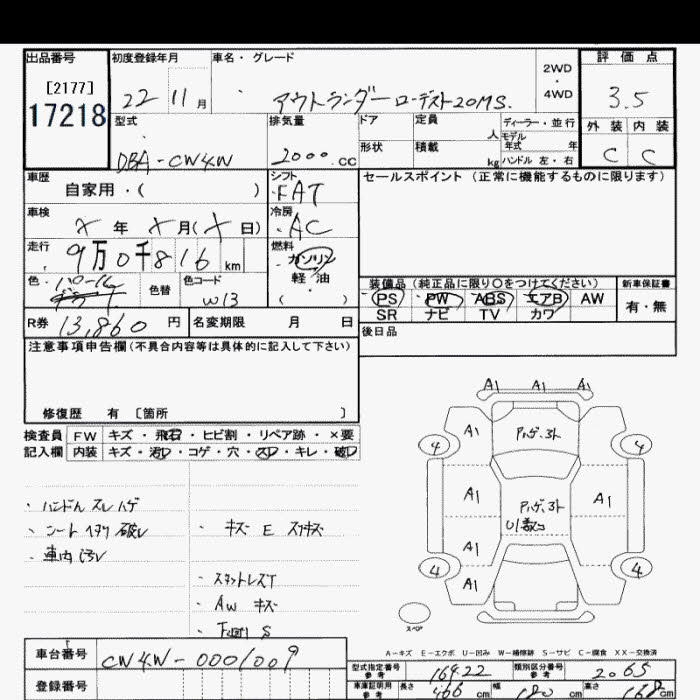 出品番号 初度登録年月 車名・グレード 評価点
[2177]
17218
22 11月 アウトランダー ローデスト20MS. 2WD・4WD 3.5
型式 排気量 ドア 定員 人 ディーラー・並行 外装 内装
モデル年式 年
DBA-CW4W 2000.cc 形状 積載 kg ハンドル 左・右 C C
車歴 シフト セールスポイント (正常に機能するものに限ります)
自家用・( ) FAT
車検 冷房
X年 X月(X日) AC
走行 燃料
9万0千816km ガソリン
色・パール 色替 色コード 軽油 装備品(純正品に限り○をつけてください) 新車保証書
W13 ・( ) PS PW ABS エアB AW 有・無
SR ナビ TV カワ
R券 13,860円 名変期限 月 日 後日品
注意事項申告欄(不具合内容等は具体的に記入して下さい)
修復歴 有 [箇所 ]
検査員 FW キズ・飛石・ヒビ割・リペア跡・×要
記入欄 内装 キズ・汚レ・コゲ・穴・スレ・キレ・破レ
A1 A1 A1
A1 ハゲ.ヌト
4 4
A1 ハゲ.ヌト A1
U1数コ
A1
4 4
A1
スペア
・ハンドル スレ ハゲ
・シート ヘタリ 破レ ・キズ E スリキズ
・車内 汚レ
・スタットレスT
・AW キズ
・下回り S
A-キズ E-エクボ U-凹み W-補修跡 S-サビ C-腐食 XX-交換済
車台番号 CW4W-0001009
型式指定番号 参考 16422 類別区分番号 参考 2065
登録番号 車庫証明用 参考 長さ 466cm 幅 180cm 高さ 168cm